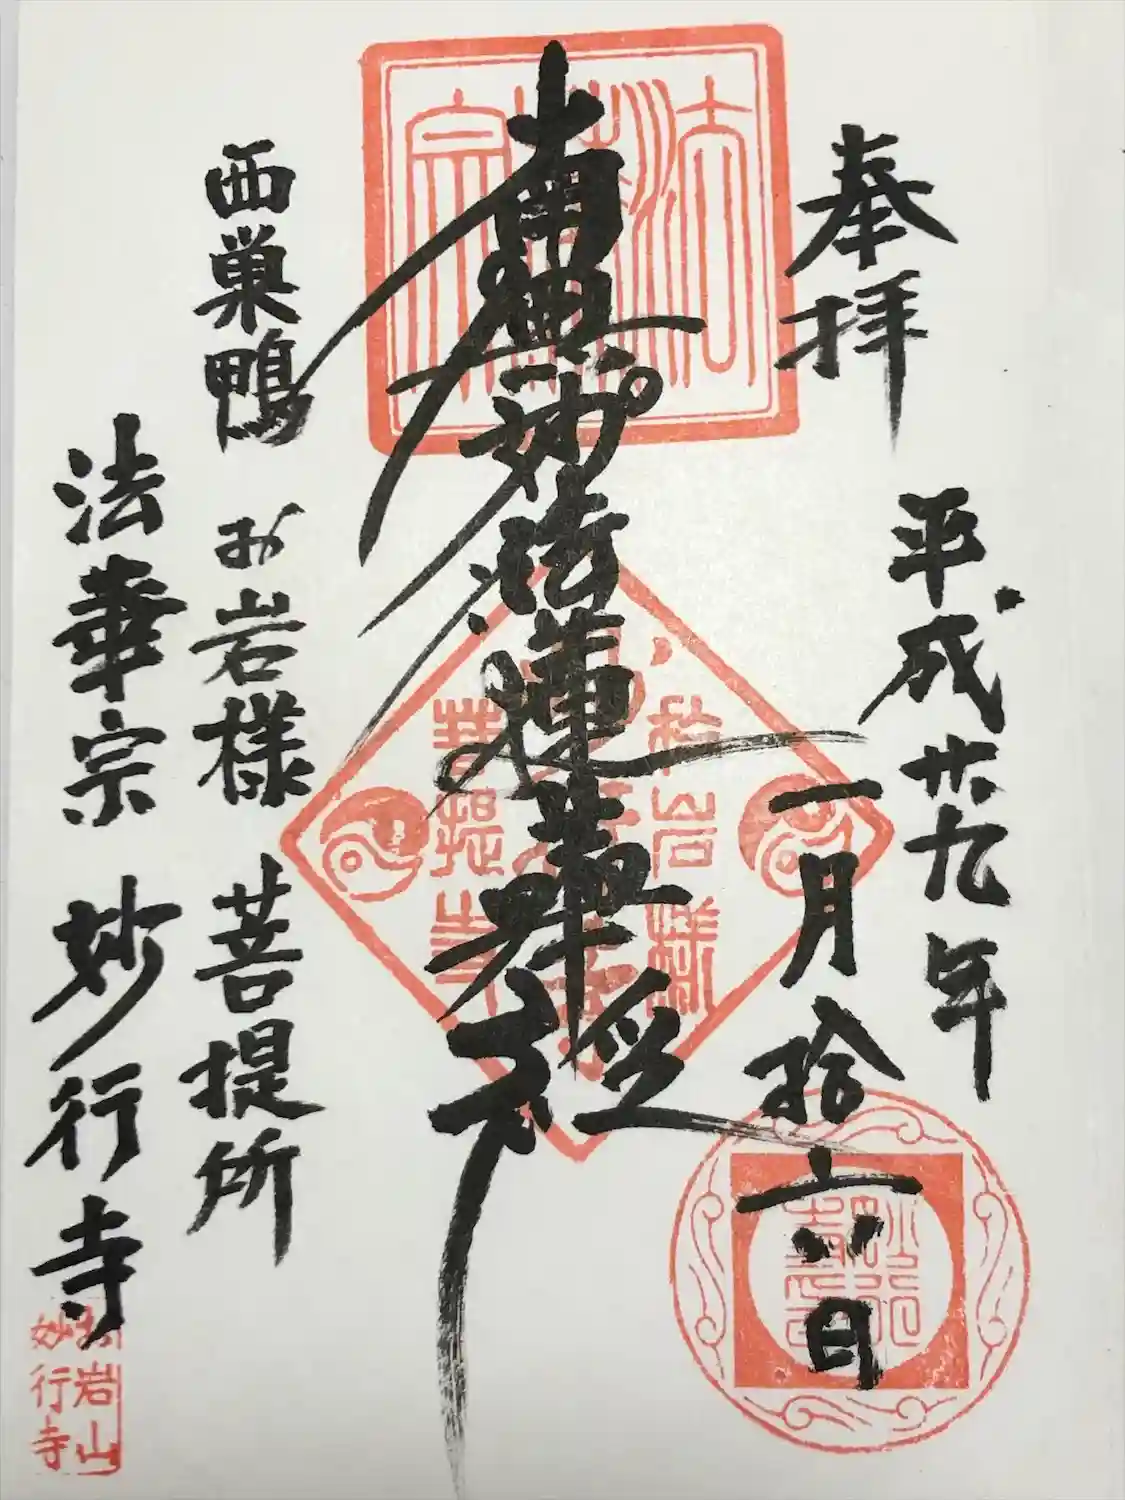 奉拝
平成廿九年
一月拾六日
南無妙法蓮華経
西巣鴨 お岩様 菩提所
法華宗 妙行寺
法華宗
お岩様
菩提寺
妙行寺
岩山
妙行寺